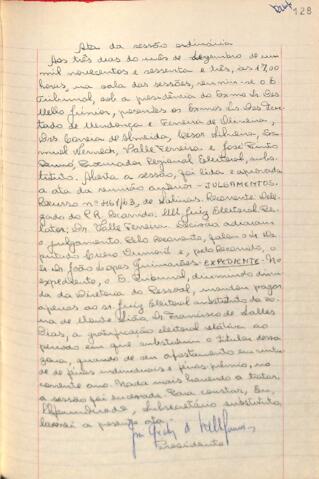 128
Ata da sessão ordinária
Aos três dias do mês de dezembro de um
mil novecentos e sessenta e três, às 17,00
horas, na sala das sessões, reuniu-se o E.
Tribunal, sob a presidência do Exmo Sr. Des.
Mello Júnior, presentes os Exmos Srs. Des. Fur-
tado de Mendonça e Ferreira de Oliveira,
Drs. Correia de Almeida, Cesar Silveira,
Valle Ferreira e José Pinto
Procurador Regional Eleitoral, subs-
tituto. Aberta a sessão, foi lida e aprovada
a ata da reunião anterior - JULGAMENTOS.
Recurso nº 461/63, de Salinas. Recorrente Dele-
gado do P.R. Recorrido: MM. Juiz Eleitoral. Re-
lator: Dr. Valle Ferreira. Decisão: adiaram
o julgamento. Pelo Recorrente, falou o Sr. De-
putado e, pelo Recorrido, o
Sr. Dr. João Lopes Guimarães - EXPEDIENTE - No
expediente, o E. Tribunal, dirimindo dúvi-
da da Diretoria do Pessoal, mandou pagar
apenas ao Sr. Juiz Eleitoral substituto da zo-
na de Monte Sião, Dr. Francisco de Salles
Dias, a gratificação eleitoral relativa ao
período em que substituiu o titular dessa
zona, quando de seu afastamento em virtu-
de de férias individuais e férias-prêmio, no
corrente ano. Nada mais havendo a tratar,
a sessão foi encerrada. Para constar, Eu,
Subsecretário substituto,
lavrei a presente ata.
Presidente